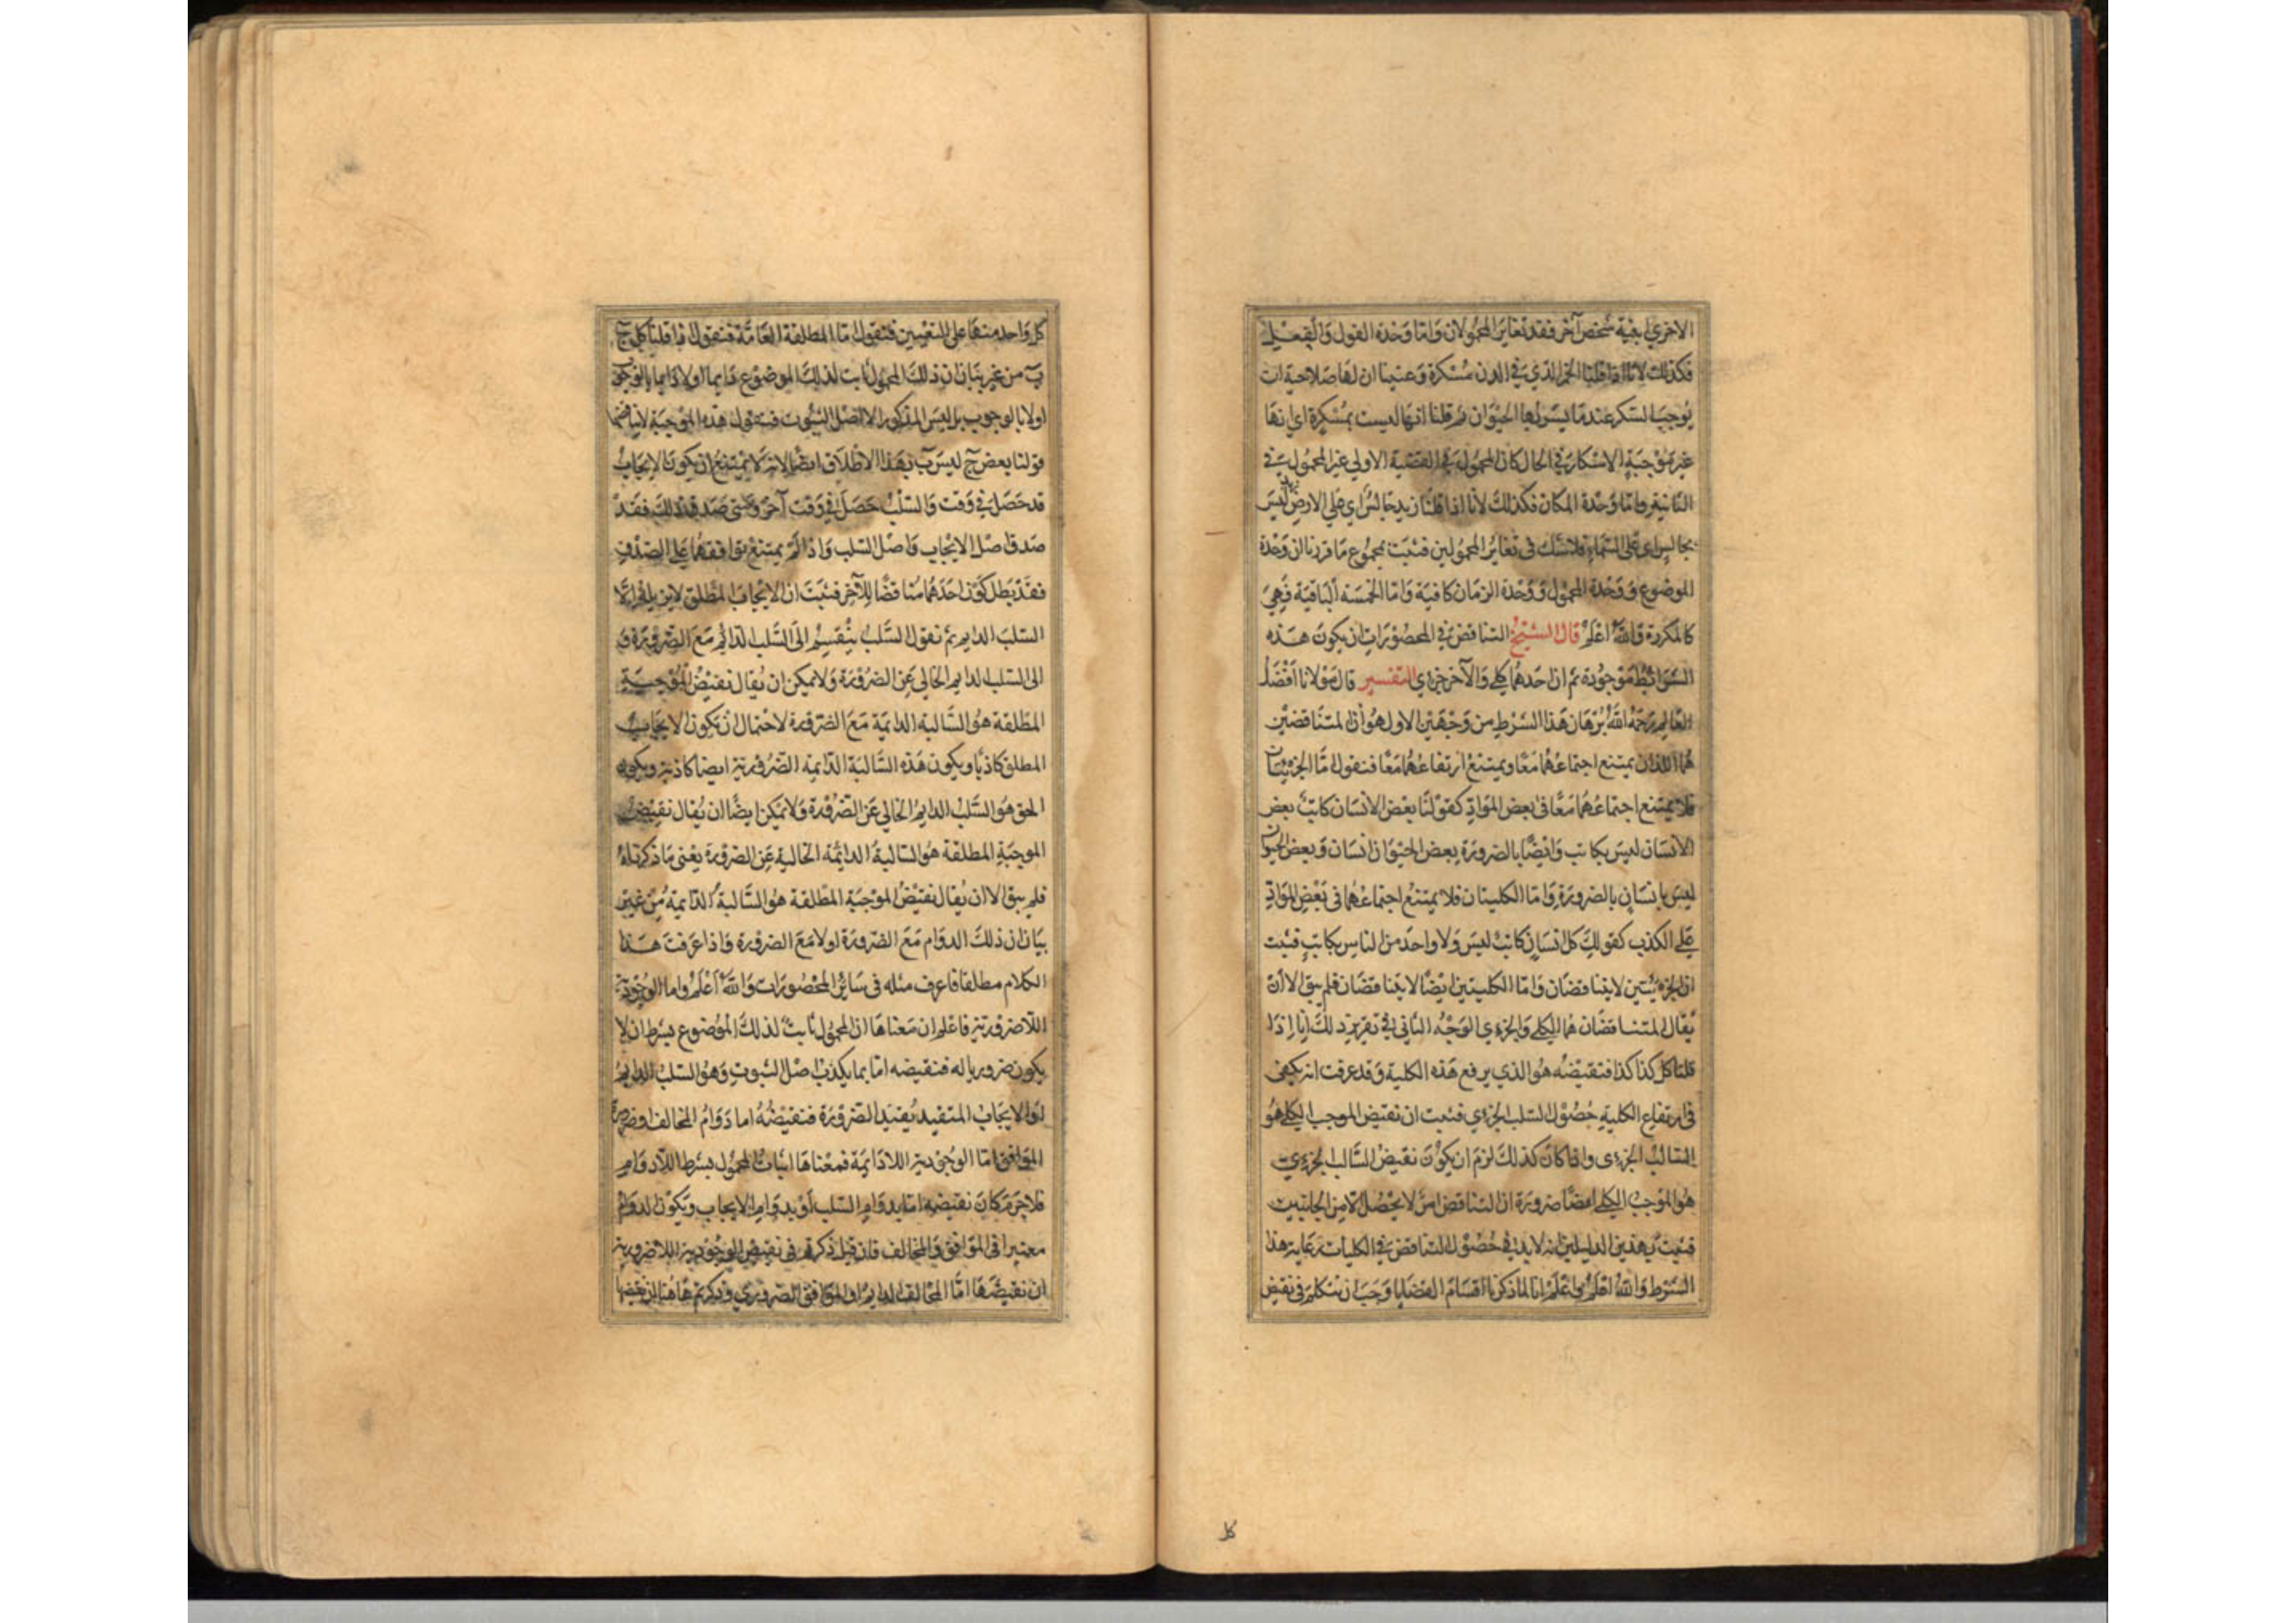 الاخرى ابنية شخص آخر فقد تغاير المحمولان واما وحدة القول والفعل
فكذلك لانا اذا قلنا الخمر الذي في الدن مسكرة وعنينا ان لها صلاحية ان
يوجب السكر عندما يشربها الحيوان ثم قلنا انها ليست بمسكرة اي انها
غير موجبة الاسكار في الحال كان المحمول في القضية الاولى غير المحمول في
الثانية واما وحدة المكان فكذلك لانا اذا قلنا زيد جالس اي على الارض زيد ليس
بجالس اي على السماء فلا شك في تغاير المحمولين فثبت بمجموع ما قررنا ان وحدة
الموضوع ووحدة المحمول ووحدة الزمان كافية واما الخمسة الباقية فهي
كالمكررة والله اعلم قال الشيخ التناقض في المحصورات ان يكون هذه
الشرائط موجودة ثم ان احدهما كلي والآخر جزءي التفسير قال مولانا افضل
العالم رحمه الله برهان هذا الشرط من وجهين الاول هو أن المتناقضين
هما اللذان يمتنع اجتماعهما معا ويمتنع ارتفاعهما معا فنقول اما الجزئيتان
فلا يمتنع اجتماعهما معا في بعض المواد كقولنا بعض الانسان كاتب بعض
الانسان ليس بكاتب وايضا بالضرورة بعض الحيوان انسان وبعض الحيوان
ليس بانسان بالضرورة واما الكليتان فلا يمتنع اجتماعهما في بعض المواد
على الكذب كقولك كل انسان كاتب ليس ولا واحد من الناس بكاتب فثبت
ان الجزئيتين لا يتناقضان واما الكليتين ايضا لا يتناقضان فلم يبق الا أن
يقال المتناقضان هما الكلي والجزءي الوجه الثاني في تقرير ذلك انا اذا
قلنا كل كذا كذا فنقيضه هو الذي يرفع هذه الكلية وقد عرفت انه يكفي
في ارتفاع الكلية حصول السلب الجزءي فثبت ان نقيض الموجب الكلي هو
السالب الجزءى واذا كان كذلك لزم ان يكون نقيض السالب الجزءي
هو الموجب الكلي ايضا ضرورة ان التناقض امر لا يحصل الا من الجانبين
فثبت بهذين الدليلين انه لا بد في حصول التناقض في الكليات رعاية هذا
الشرط والله اعلم واعلم انا لما ذكرنا اقسام القضايا وجب ان نتكلم في نقيض
كل
كل واحد منها على التعيين فنقول اما المطلقة العامة فنقول اذا قلنا كل ج
ب من غير بيان ان ذلك المحمول ثابت لذلك الموضوع دايما او لا دايما بالوجوب
او لا بالوجوب بل ليس المذكور الا اصل الثبوت فنقول هذه الموجبة لا يناقضها
قولنا بعض ج ليس ب بهذا الاطلاق ايضا لانه لا يمتنع ان يكون الايجاب
قد حصل في وقت والسلب حصل في وقت آخر ومتى صدق ذلك فقد
صدق اصل الايجاب واصل السلب واذا لم يمتنع توافقهما على الصدق
فقد بطل كون احدهما مناقضا للآخر فثبت ان الايجاب المطلق لا يرفعه الا
السلب الدايم ثم نقول السلب ينقسم الى السلب الدائم مع الضرورة و
الى السلب الدايم الخالي عن الضرورة ولا يمكن ان يقال نقيض الموجبة
المطلقة هو السالبة الدايمة مع الضرورة لاحتمال ان يكون الايجاب
المطلق كاذبا ويكون هذه السالبة الدايمة الضرورية ايضا كاذبة ويكون
الحق هو السلب الدايم الخالي عن الضرورة ولا يمكن ايضا ان يقال نقيض
الموجبة المطلقة هو السالبة الدائمة الخالية عن الضرورة يعني ما ذكرناه
فلم يبق الا ان يقال نقيض الموجبة المطلقة هو السالبة الدايمة من غير
بيان ان ذلك الدوام مع الضرورة او لا مع الضرورة واذا عرفت هذا
الكلام مطلقا فاعرف مثله في سائر المحصورات والله أعلم واما الوجودية
اللاضرورية فاعلم ان معناها ان المحمول ثابت لذلك الموضوع بشرط ان لا
يكون ضروريا له فنقيضه اما بما يكذب اصل الثبوت وهو السلب الدايم
او الايجاب المتقيد بقيد الضرورة فنقيضه اما دوام المخالف او ضرورة
الموافق اما الوجودية اللادايمة فمعناها اثبات المحمول بشرط اللادوام
فلا جرم كان نقيضه اما بدوام السلب أو بدوام الايجاب ويكون الدوام
معتبرا في الموافق والمخالف فان قيل ذكرتم في نقيض الوجودية اللاضرورية
ان نقيضها اما المخالف الدايم او الموافق الضروري وذكرتم هاهنا ان نقيضها